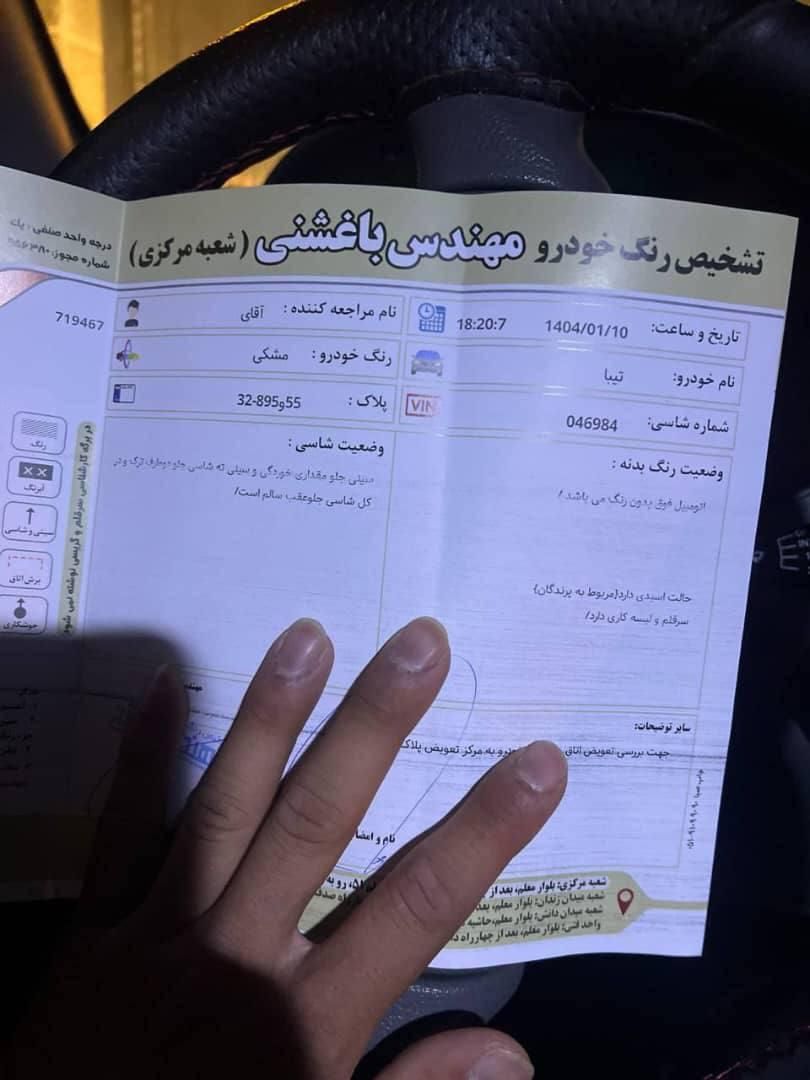 تشخیص رنگ خودرو مهندس باغشنی (شعبه مرکزی)
درجه واحد صنفی : یک
شماره مجوز:
تاریخ و ساعت: 1404/01/10 18:20:7
نام مراجعه کننده : آقای
719467
نام خودرو: تیبا
رنگ خودرو : مشکی
شماره شاسی: 046984
VIN
پلاک : 55و895-32
وضعیت رنگ بدنه :
اتومبیل فوق بدون رنگ می باشد /
حالت اسیدی دارد(مربوط به پرندگان)
سرقلم و لیسه کاری دارد/
وضعیت شاسی :
سینی جلو مقداری خوردگی و سینی ته شاسی جلو دوطرف ترک و در
کل شاسی جلوعقب سالم است/
در برگه کارشناسی سرقلم و گریسی نوشته نمی شود
رنگ
آبرنگ
سینی و شاسی
برش اتاق
جوشکاری
سایر توضیحات:
جهت بررسی تعویض اتاق خودرو به مرکز تعویض پلاک
نام و امضا
شعبه مرکزی: بلوار معلم، بعد از
شعبه میدان زندان: بلوار معلم، بعد
شعبه میدان دانش: بلوار معلم، حاشیه
واحد فنی: بلوار معلم، بعد از چهارراه